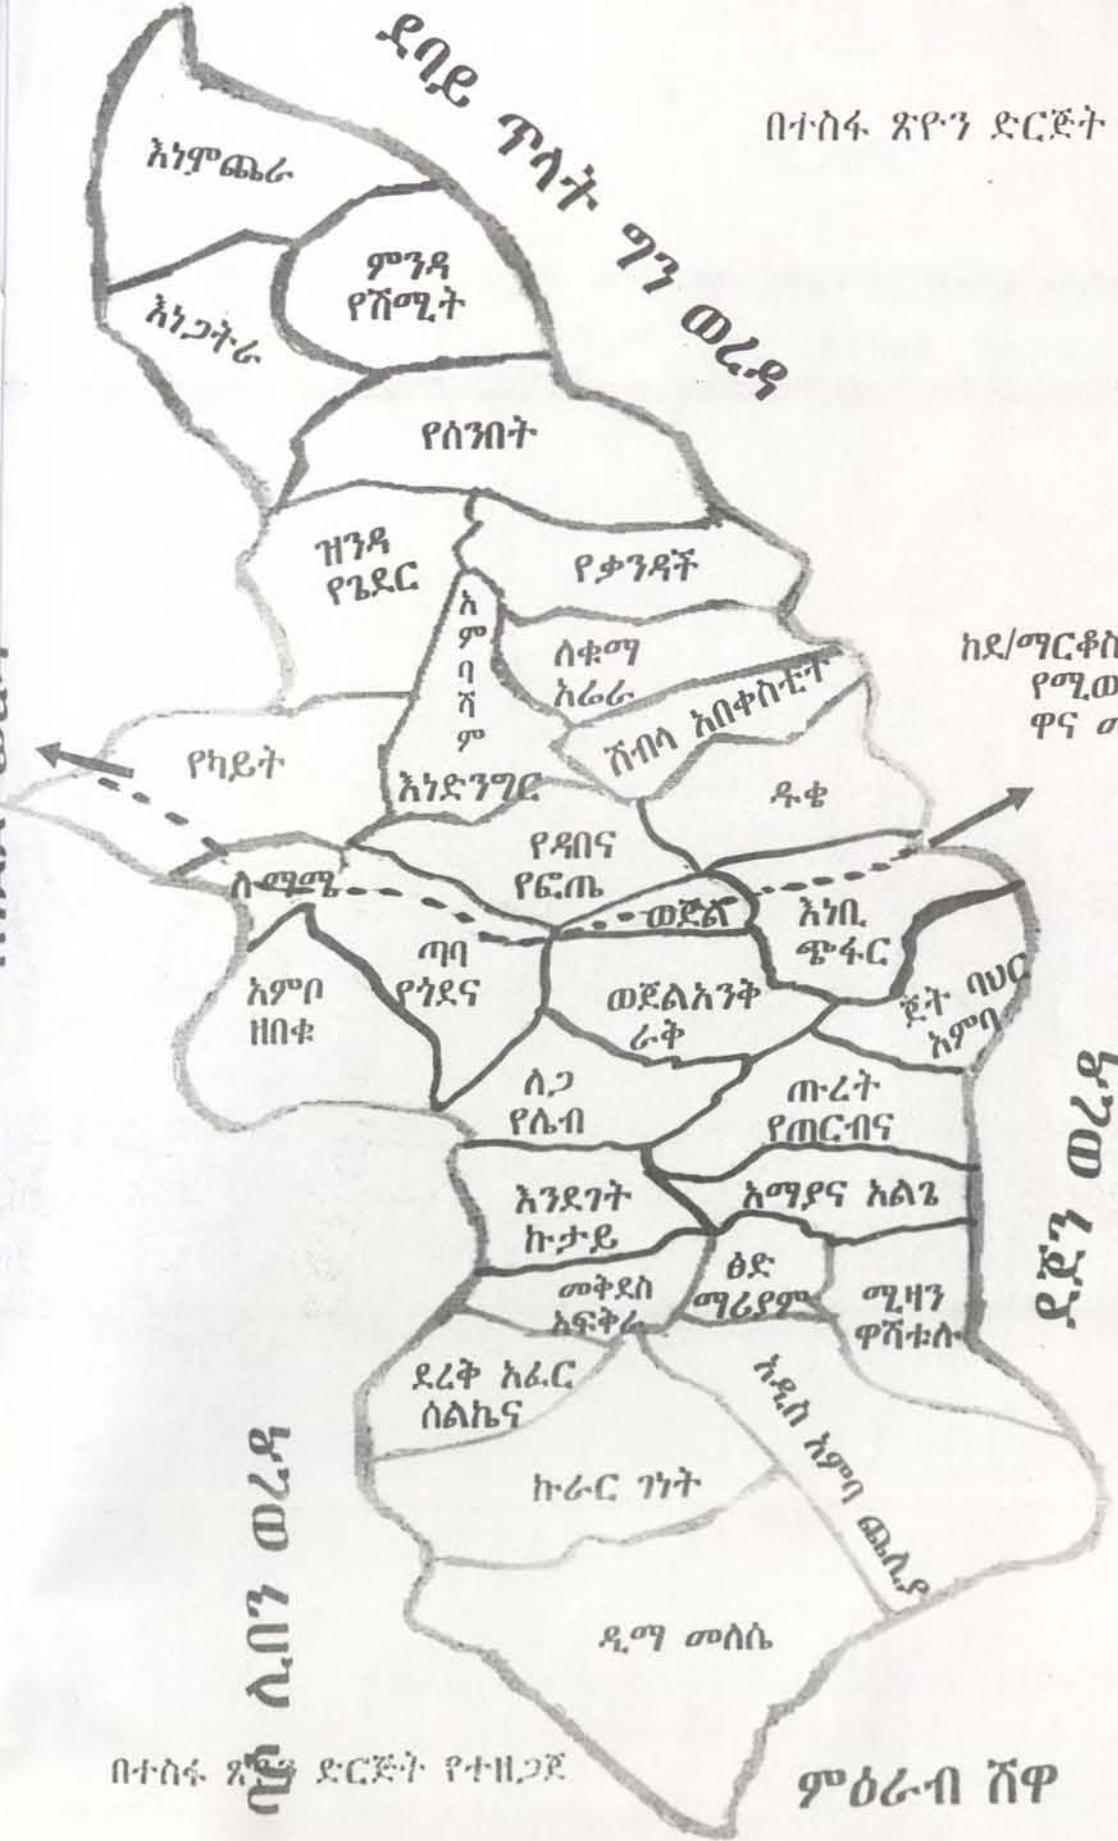 ደባይ ጥላት ግን ወረዳ
በተስፋ ጽዮን ድርጅት
እነምጨራ
ምንዳ
የሽሚት
እነጋትራ
የሰንበት
ዝንዳ
የጌደር
የቃንዳች
አ
ም
ባ
ሻ
ም
ለቁማ
አሬራ
ሽብላ አበቀስቲት
ከደ/ማርቆስ
የሚወ
ዋና መ
የካይት
እነድንግር
ዱቄ
የዳበና
የፎጤ
ሉማሜ
ወጀል
እነቢ
ጭፋር
ጣባ
የጎደና
አምቦ
ዘበቁ
ወጀልአንቅ
ራቅ
ጀት ባህር
አምባ
ለጋ
የሌብ
ጡረት
የጠርብና
ደጀን ወረዳ
እንደገት
ኩታይ
አማያና አልጌ
መቅደስ
አፍቅራ
ፅድ
ማሪያም
ሚዛን
ዋሻቱሉ
ደረቅ አፈር
ሰልኬና
አዲስ አምባ ጨሊያ
ኩራር ገነት
ሊበን ወረዳ
ዲማ መለሴ
በተስፋ ጽዮን ድርጅት የተዘጋጀ
ምዕራብ ሸዋ